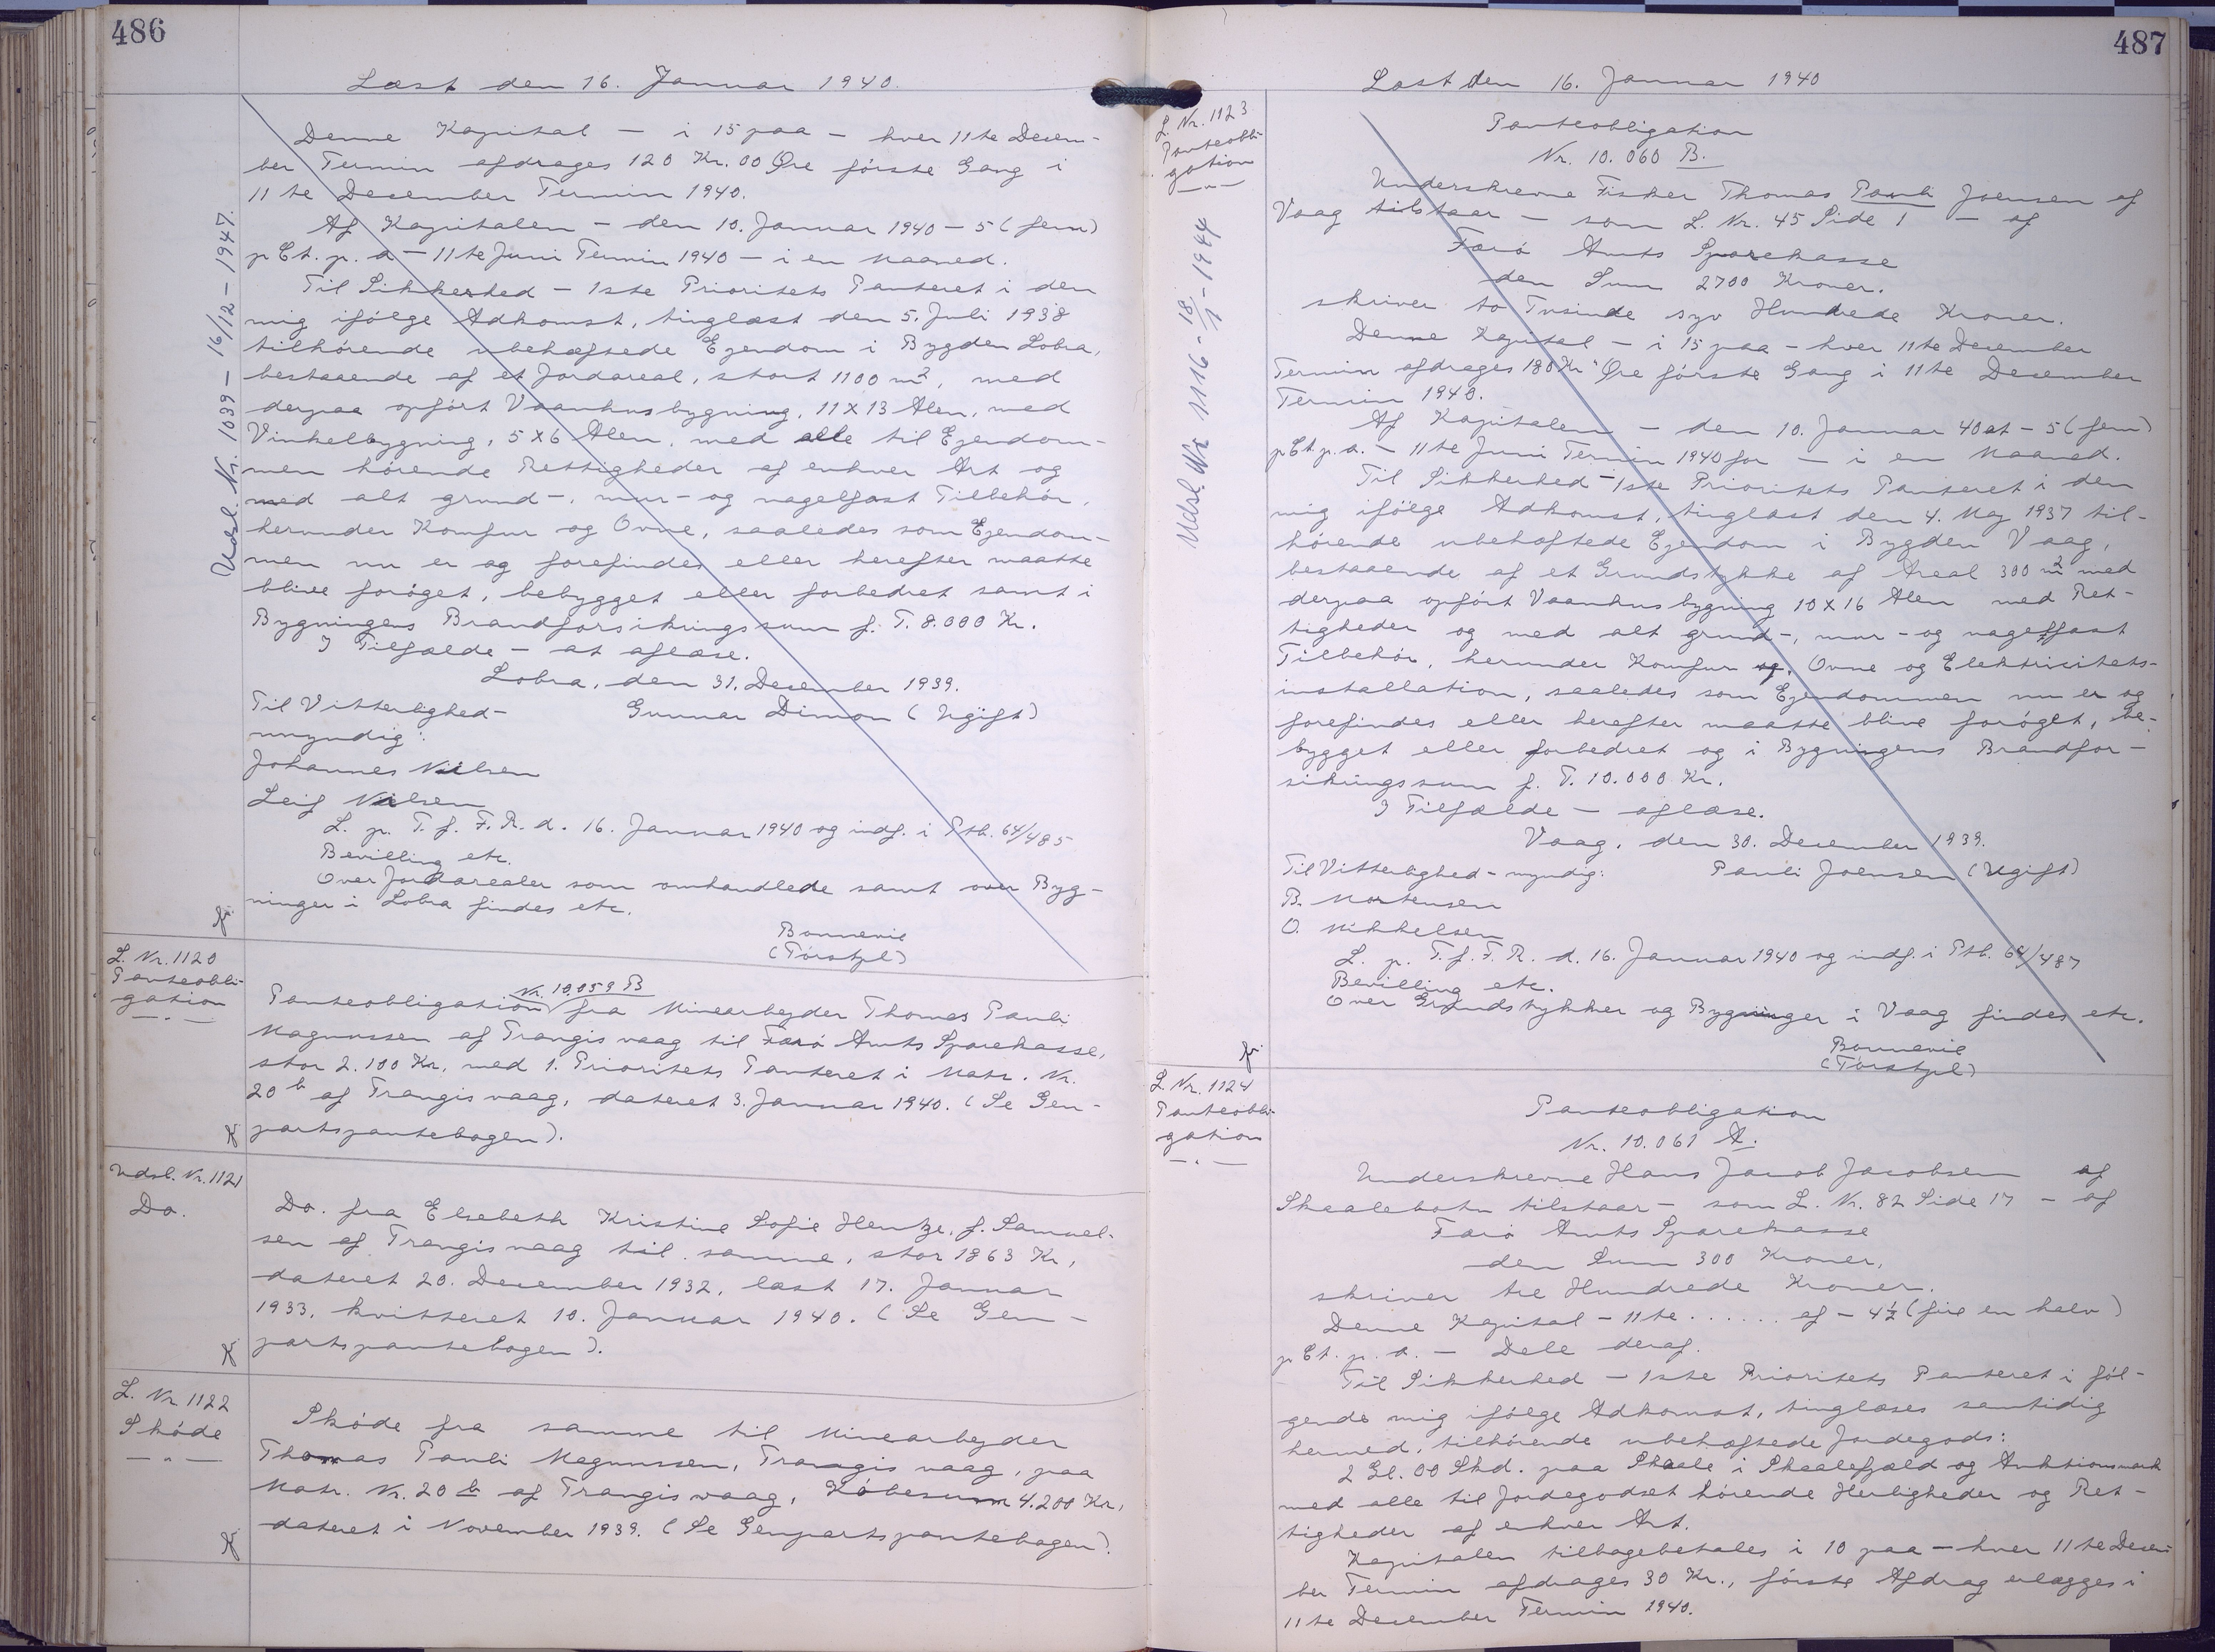 486
Læst den 16. Januar 1940.
Udsl. Nr. 1039 – 16/12 – 1947.
Denne Kapital – i 15 paa – hver 11te Decem-
ber Termin afdrages 120 Kr. 00 Øre første Gang i
11te December Termin 1940.
Af Kapitalen – den 10. Januar 1940 – 5 (fem)
p Ct. p. a – 11te Juni Termin 1940 – i en Maaned.
Til Sikkerhed – 1ste Prioritets Panteret i den
mig ifölge Adkomst, tinglæst den 5. Juli 1938
tilhörende ubehæftede Ejendom i Bygden Lobra,
bestaaende af et Jordareal, stort 1100 m², med
derpaa opfört Vaanhusbygning, 11 x 13 Alen, med
Vinkelbygning, 5 x 6 Alen, med alle til Ejendom-
men hörende Rettigheder af enhver Art og
med alt grund-, mur- og nagelfast Tilbehör,
herunder Komfur og Ovne, saaledes som Ejendom-
men nu er og forefindes eller herefter maatte
blive foröget, bebygget eller forbedret samt i
Bygningens Brandforsikringssum f. T. 8.000 Kr.
I Tilfælde – at aflæse.
Lobra, den 31. December 1939.
Til Vitterlighed – Gunnar Dimon (Ugift)
myndig:
Johannes Nielsen
Leif Nielsen
L. p. T. f. F. R. d. 16. Januar 1940 og indf. i Ptb. 64/485
Bevilling etc.
Over Jordarealer som omhandlede samt over Byg-
ninger i Lobra findes etc.
Bonnevie
(Tórstpl)
L. Nr. 1120
Panteobli-
gation
Nr. 10.059 B
Panteobligation fra Minearbejder Thomas Pauli
Magnussen af Trangisvaag til Færö Amts Sparekasse,
stor 2.100 Kr, med 1. Prioritets Panteret i Matr. Nr.
20 b af Trangisvaag, dateret 3. Januar 1940. (Se Gen-
partspantebogen).
Udsl. Nr. 1121
Do.
Do. fra Elsebeth Kristine Sofie Hentze, f. Samuel-
sen af Trangisvaag til samme, stor 1863 Kr,
dateret 20. December 1932, læst 17. Januar
1933, kvitteret 10. Januar 1940. (Se Gen-
partspantebogen).
L. Nr. 1122
Sköde
Sköde fra samme til Minearbejder
Thomas Pauli Magnussen, Trangisvaag, paa
Matr. Nr. 20 b af Trangisvaag, Köbesum 4.200 Kr,
dateret i November 1939. (Se Genpartspantebogen).
487
Læst den 16. Januar 1940
L. Nr. 1123
Panteobli-
gation
Udsl. Nr. 1116 - 18/1 - 1944
Panteobligation
Nr. 10.060 B.
Underskrevne Fisker Thomas Pauli Joensen af
Vaag tilstaar – som L. Nr. 45 Side 1 – af
Færö Amts Sparekasse
den Sum 2700 Kroner.
skriver to Tusinde syv Hundrede Kroner.
Denne Kapital – i 15 paa – hver 11te December
Termin afdrages 180 Kr " Øre förste Gang i 11te December
Termin 1940.
Af Kapitalen – den 10. Januar 40 at – 5 (fem)
p Ct. p. a. – 11te Juni Termin 1940 for – i en Maaned.
Til Sikkerhed – 1ste Prioritets Panteret i den
mig ifölge Adkomst, tinglæst den 4. Maj 1937 til-
hörende ubehæftede Ejendom i Bygden Vaag,
bestaaende af et Grundstykke af Areal 300 m² med
derpaa opfört Vaanhusbygning 10 x 16 Alen med Ret-
tigheder og med alt grund-, mur- og nagelfast
Tilbehör, herunder Komfur og, Ovne og Elektricitets-
installation, saaledes som Ejendommen nu er og
forefindes eller herefter maatte blive foröget, be-
bygget eller forbedret og i Bygningens Brandfor-
sikringssum f. T. 10.000 Kr.
I Tilfælde – aflæse.
Vaag, den 30. December 1939.
Til Vitterlighed – myndig: Pauli Joensen (Ugift)
B. Mortensen
O. Mikkelsen
L. p. T. f. F. R. d. 16. Januar 1940 og indf. i Ptb. 64/487
Bevilling etc.
Over Grundstykker og Bygninger i Vaag findes etc.
Bonnevie
(Tórstpl)
L. Nr. 1124
Panteobli-
gation
Panteobligation
Nr. 10.061 A.
Underskrevne Hans Jacob Jacobsen af
Skaalebotn tilstaar – som L. Nr. 82 Side 17 – af
Færö Amts Sparekasse
den Sum 300 Kroner,
skriver tre Hundrede Kroner.
Denne Kapital – 11te ...... af – 4½ (fire en halv)
p Ct. p. a. – Dele deraf.
Til Sikkerhed – 1ste Prioritets Panteret i föl-
gende mig ifölge Adkomst, tinglæses samtidig
hermed, tilhörende ubehæftede Jordegods:
2 Gl. 00 Skd. paa Skaale i Skaalefjæld og Auktionsmark
med alle til Jordegodset hörende Herligheder og Ret-
tigheder af enhver Art.
Kapitalen tilbagebetales i 10 paa – hver 11te Decem-
ber Termin afdrages 30 Kr., förste Afdrag erlægges i
11te December Termin 1940.